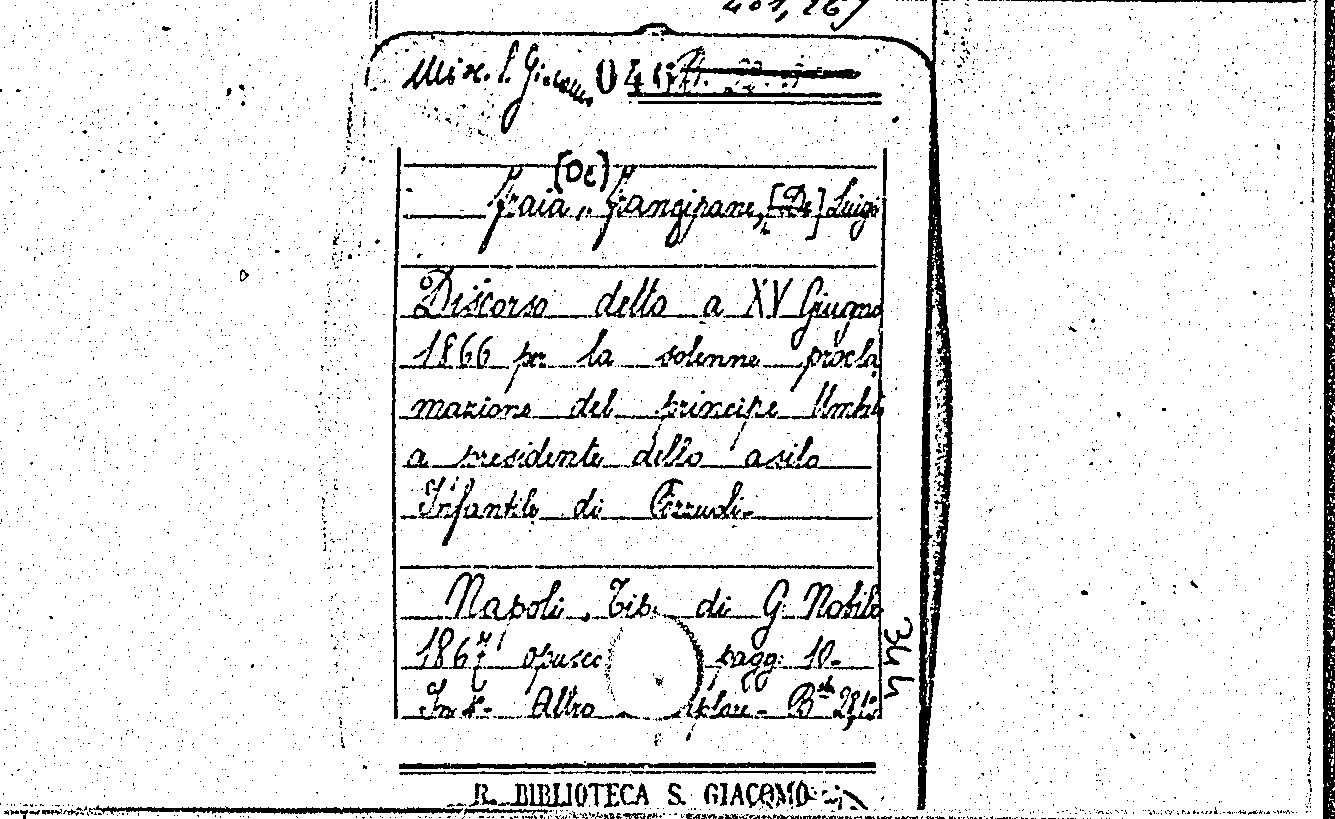 Misc. S. Giacomo 04
[De]
Fraia, Frangipane, [De] Luigi
Discorso detto a XV Giugno
1866 per la solenne procla
mazione del principe Umbto
a presidente dello asilo
Infantile di Pozzuoli-
Napoli, Tip. di G. Nobile
1867 opusc pagg. 10-
In 8- Altro
344
R. BIBLIOTECA S. GIACOMO